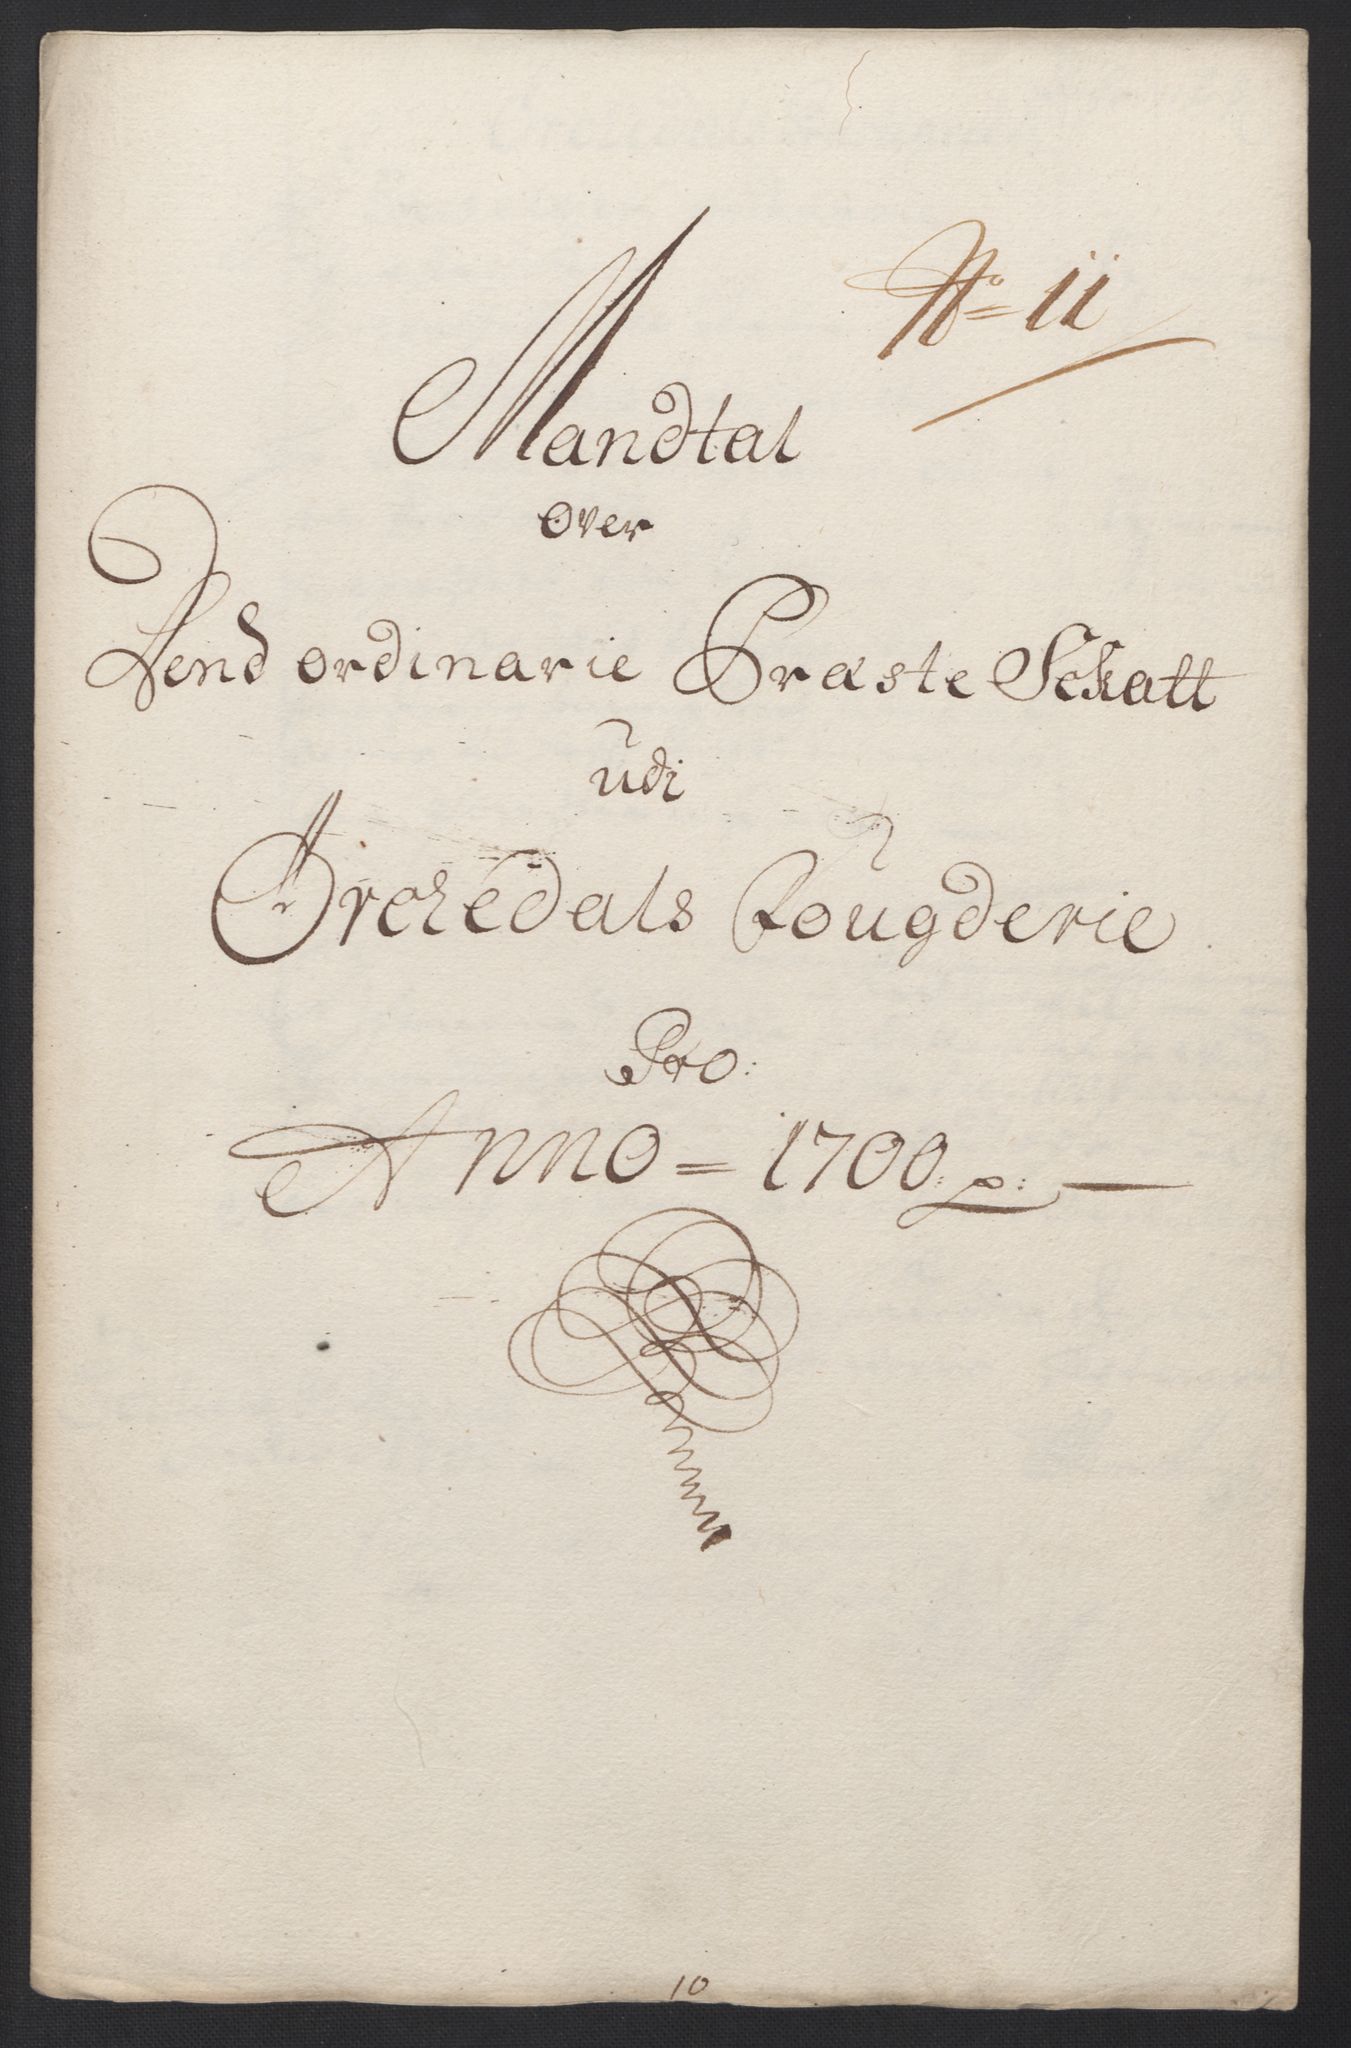 No= 11
Mandtal
over
Dend ordinarie Præste Schatt
udi
Orchedals Fougderie
Pro:
Anno = 1700 p:
10